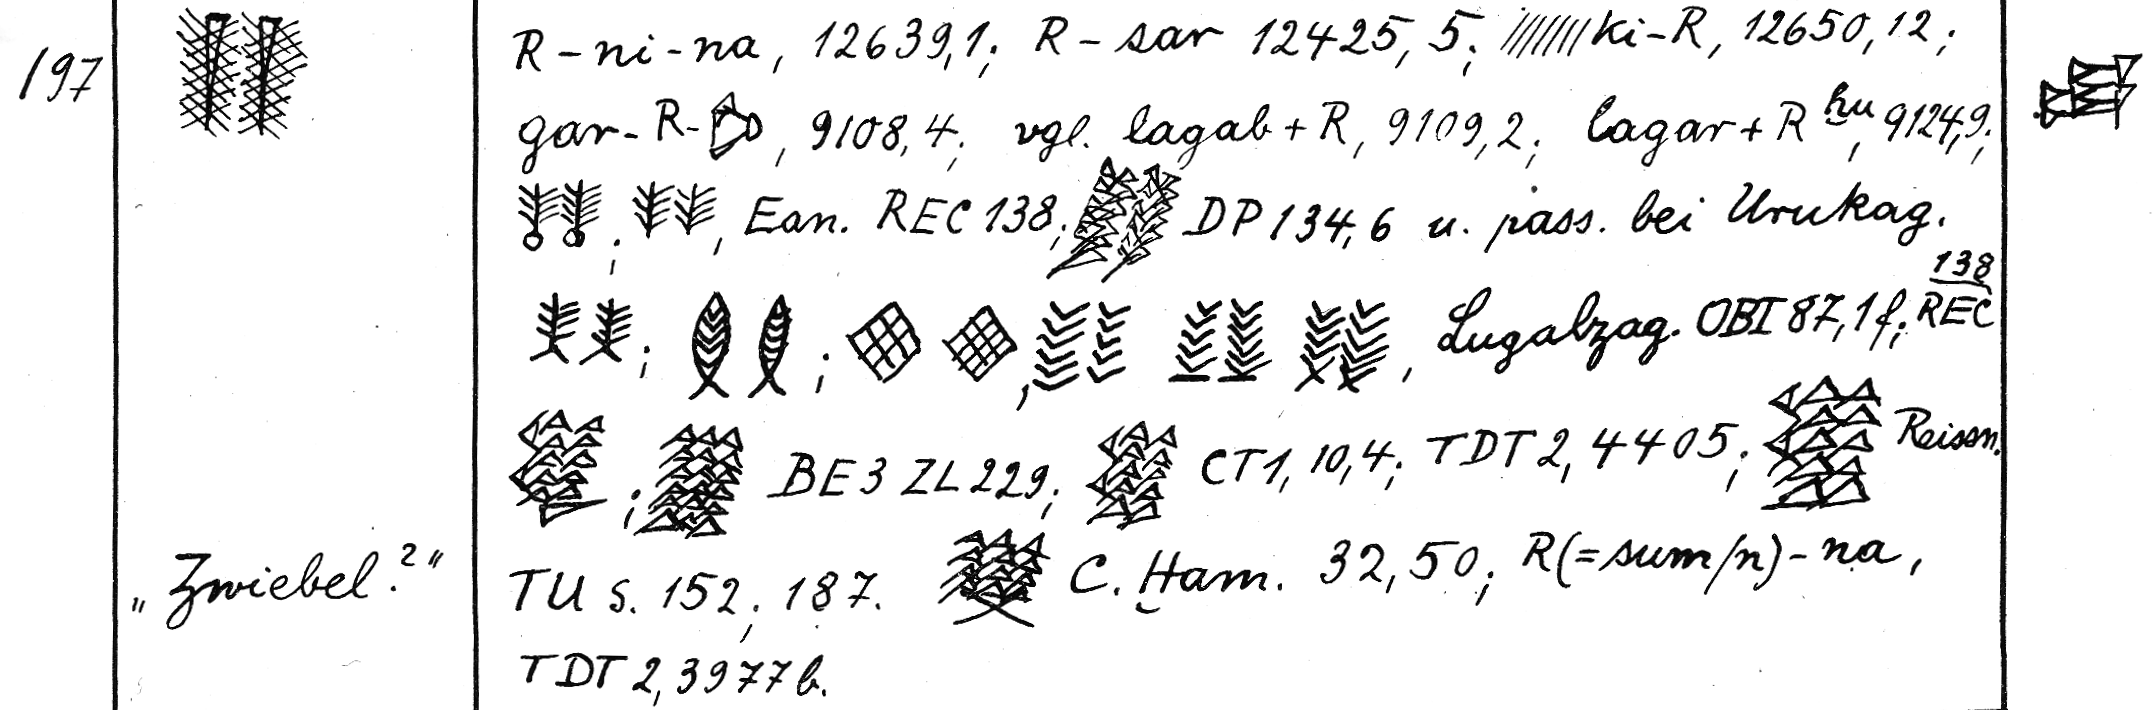 197
R-ni-na, 12639,1; R-sar 12425,5; ///////ki-R, 12650,12;
gar-R-, 9108,4; vgl. lagab+R, 9109,2; lagar+R hu, 9124,9;
; , Ean. REC 138; DP 134,6 u. pass. bei Urukag.
; ; , , Lugalzag. OBI 87,1 f; REC 138
; BE 3 ZL 229; CT 1, 10,4; TDT 2, 4405; Reissn.
„Zwiebel?“
TU s. 152; 187. C. Ham. 32,50; R(=sum/n)-na,
TDT 2, 3977 b.